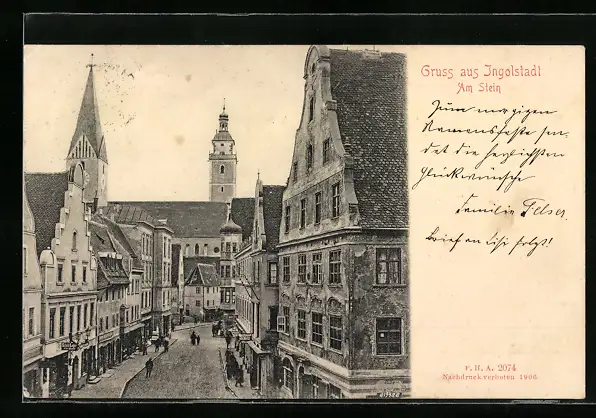 Gruss aus Ingolstadt
Am Stein
Zum morgigen
Namensfeste sen-
det die herzlichsten
Glückwünsche
Familie Felser.
Brief an Lisi folgt!
F. H. A. 2074
Nachdruck verboten 1906